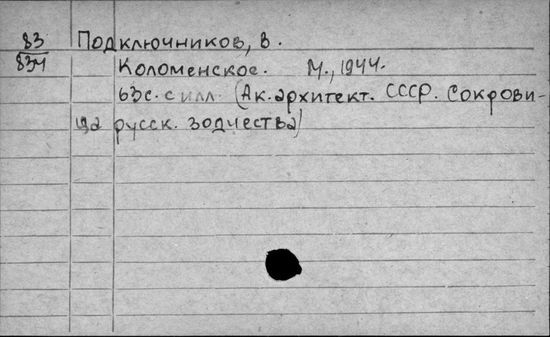 83 Подключников, В.
834 Коломенское. М., 1944.
63с. с илл. (Ак. архитект. СССР. Сокрови-
ща русск. зодчества)